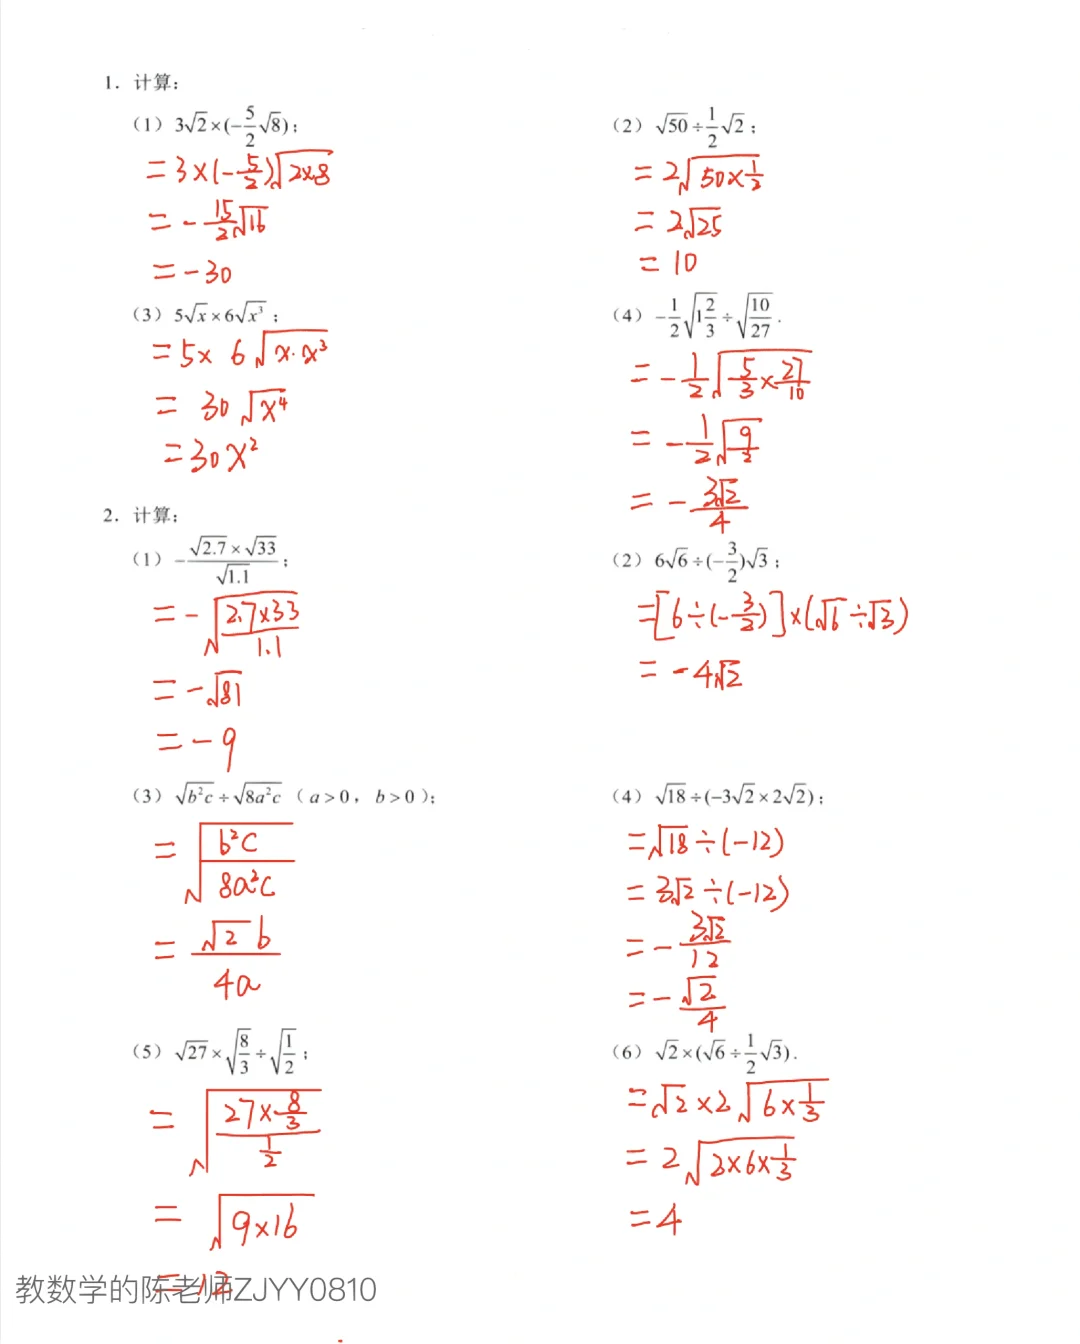 1. 计算：
（1）3√2×(−5/2√8)；
=3×(−5/2)√2×8
=−15/2√16
=−30
（2）√50÷1/2√2；
=2√50×1/2
=2√25
=10
（3）5√x×6√x³；
=5×6√x·x³
=30√x⁴
=30x²
（4）−1/2√1 2/3÷√10/27.
=−1/2√5/3×27/10
=−1/2√9/2
=−3√2/4
2. 计算：
（1）−√2.7×√33/√1.1；
=−√2.7×33/1.1
=−√81
=−9
（2）6√6÷(−3/2)√3；
=[6÷(−3/2)]×(√6÷√3)
=−4√2
（3）√b²c÷√8a²c（a>0，b>0）；
=√b²c/8a²c
=√2b/4a
（4）√18÷(−3√2×2√2)；
=√18÷(−12)
=3√2÷(−12)
=−3√2/12
=−√2/4
（5）√27×√8/3÷√1/2；
=√27×8/3/1/2
=√9×16
=12
（6）√2×(√6÷1/2√3).
=√2×2√6×1/3
=2√2×6×1/3
=4
教数学的陈老师ZJYY0810